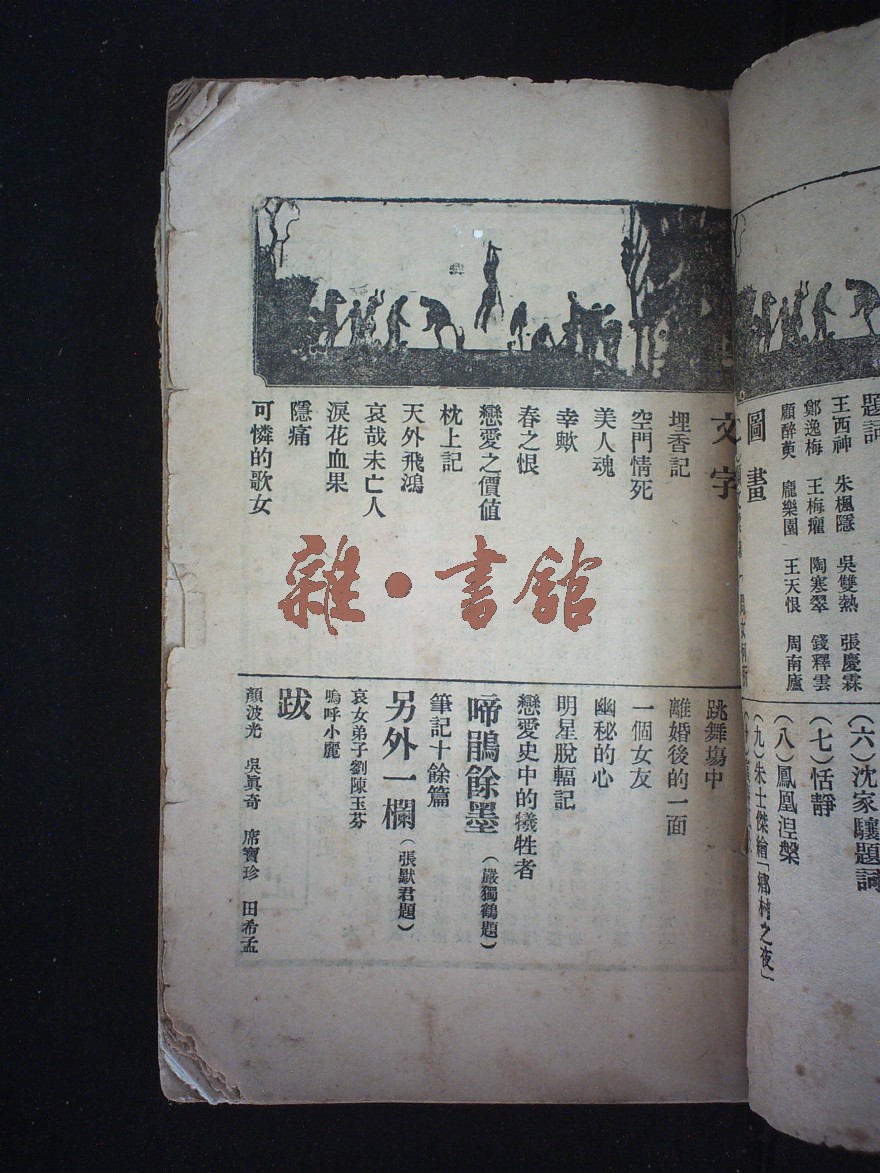 題詞
王西神 朱楓隱 吳雙熱 張慶霖
鄭逸梅 王梅癯 陶寒翠 錢釋雲
顧醉萸 龐樂園 王天恨 周南廬
圖畫
(六)沈家驤題詞
(七)恬靜
(八)鳳凰涅槃
(九)朱士傑繪「鄉村之夜」
文字
埋香記
空門情死
美人魂
幸歟
春之恨
戀愛之價值
枕上記
天外飛鴻
哀哉未亡人
淚花血果
隱痛
可憐的歌女
跳舞塲中
離婚後的一面
一個女友
幽秘的心
明星脫輻記
戀愛史中的犧牲者
啼鵑餘墨(嚴獨鶴題)
筆記十餘篇
另外一欄(張默君題)
哀女弟子劉陳玉芬
嗚呼小麗
跋
顏波光 吳眞奇 席寶珍 田希孟
雜·書館